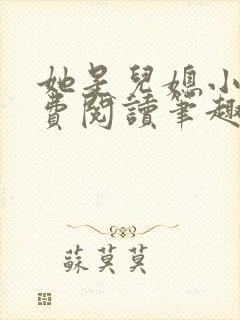 她是兒媳小
費閱讀筆趣
蘇莫莫